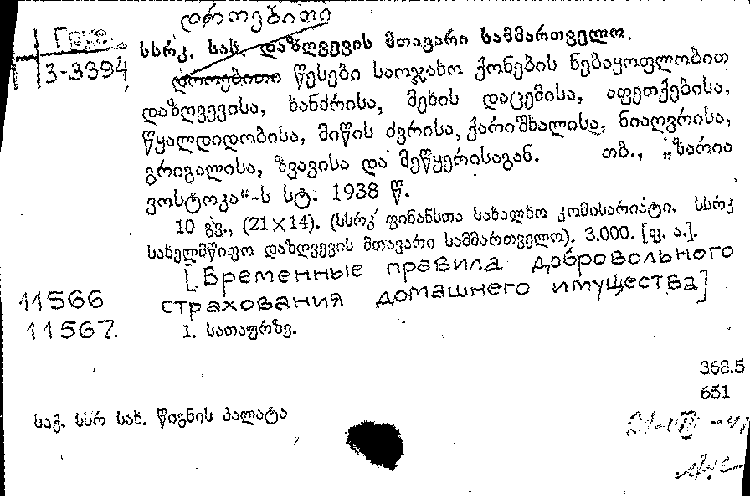 დროებითი
სსრკ. სახ. დაზღვევის მთავარი სამმართველო.
3-3394
დროებითი წესები საოჯახო ქონების ნებაყოფლობით
დაზღვევისა, ხანძრისა, მეხის დაცემისა, აფეთქებისა,
წყალდიდობისა, მიწის ძვრისა, ქარიშხალისა, ნიაღვრისა,
გრიგალისა, ზვავისა და მეწყერისაგან. თბ., „ზარია
ვოსტოკა“-ს სტ. 1938 წ.
10 გვ., (21×14). (სსრკ ფინანსთა სახალხო კომისარიატი. სსრკ
სახელმწიფო დაზღვევის მთავარი სამმართველო). 3.000. [ფ. ა.].
[Временные правила добровольного
11566 страхования домашнего имущества]
11567. 1. სათაურზე.
368.5
651
საქ. სსრ სახ. წიგნის პალატა